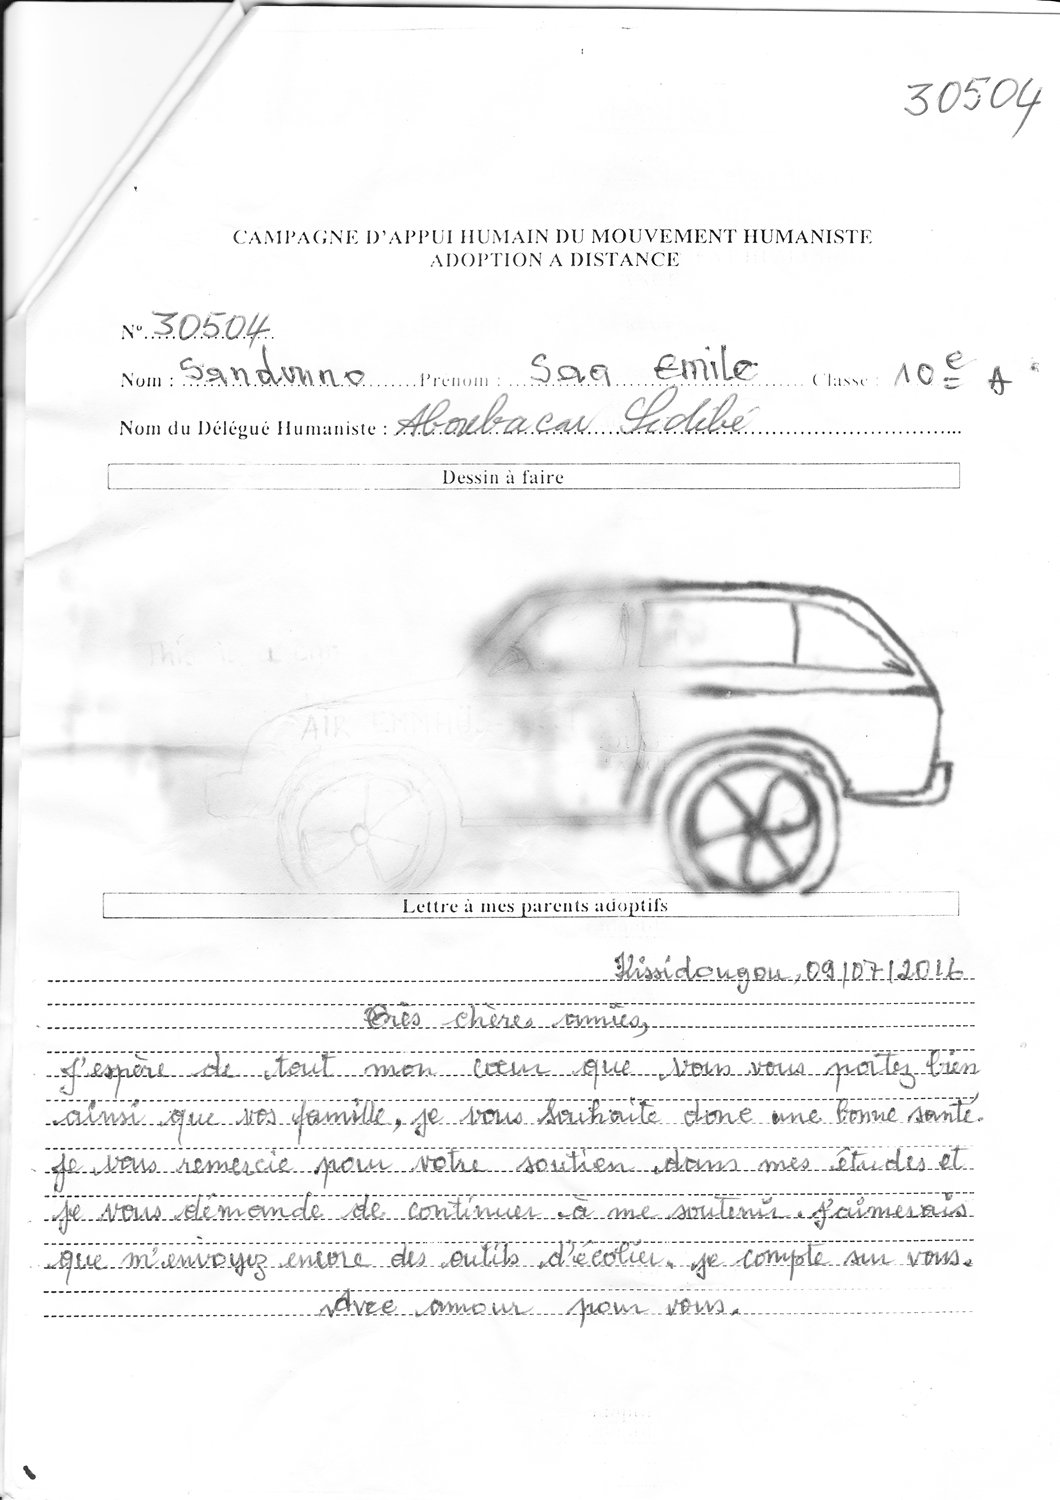 30504
CAMPAGNE D'APPUI HUMAIN DU MOUVEMENT HUMANISTE
ADOPTION A DISTANCE
N° 30504
Nom : Sandouno Prenom : Saa Emile Classe : 10e A
Nom du Délégué Humaniste : Aboubacar Sidibé
Dessin à faire
This is a
AIR
Lettre à mes parents adoptifs
Kissidougou, 09/07/2016
Très chères amies,
J'espère de tout mon cœur que vous vous portez bien
ainsi que vos famille, je vous souhaite donc une bonne santé.
Je vous remercie pour votre soutien dans mes études et
je vous démande de continuer à me soutenir. J'aimerais
que m'envoyez encore des outils d'écolier. je compte sur vous.
Avec amour pour vous.